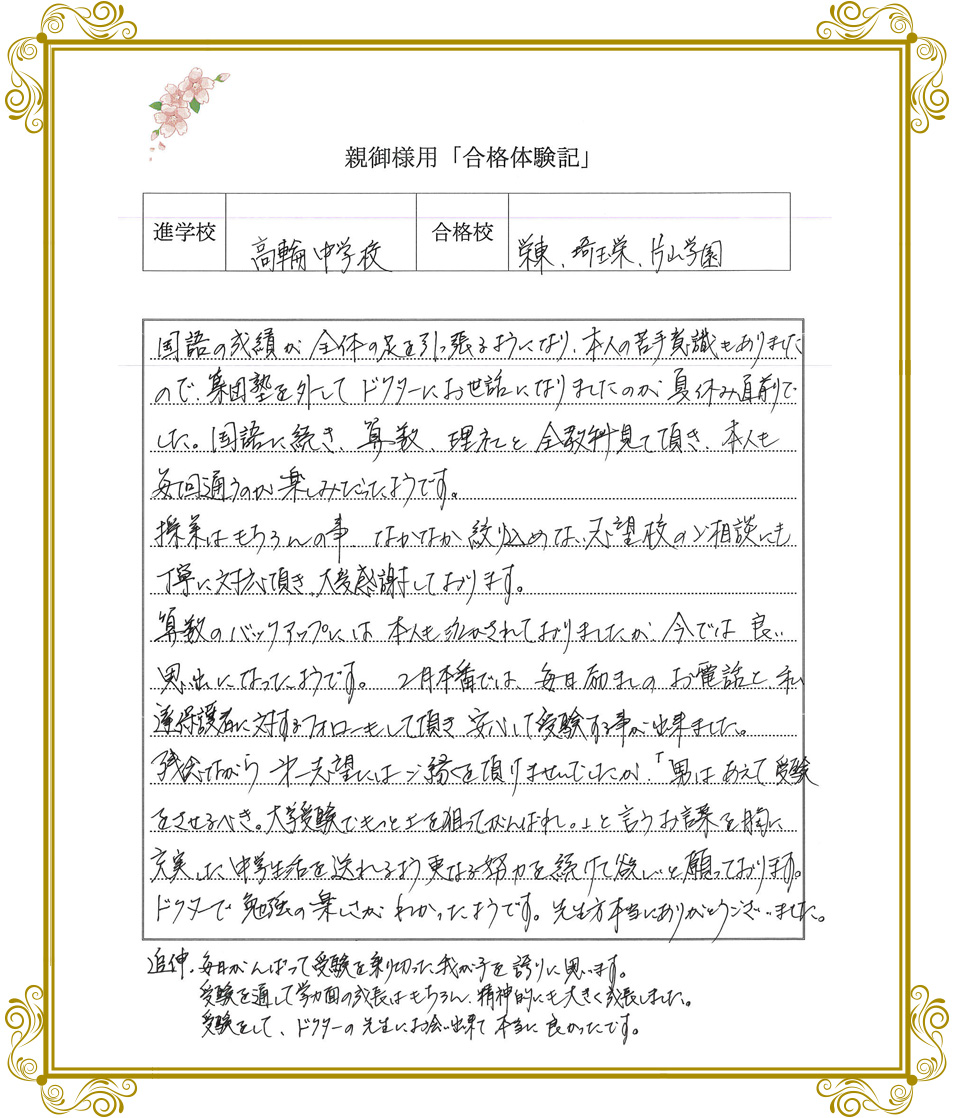 親御様用「合格体験記」
進学校 高輪中学校 合格校 栄東、埼玉栄、片山学園
国語の成績が全体の足を引っ張るようになり、本人の苦手意識もありました
ので、集団塾を外してドクターにお世話になりましたのが夏休み直前で
した。国語に続き、算数、理社と全教科見て頂き、本人も
毎回通うのが楽しみだったようです。
授業はもちろんの事、なかなか絞り込めない志望校のご相談にも
丁寧に対応頂き、大変感謝しております。
算数のバックアップには本人も泣かされておりましたが、今では良い
思い出になったようです。2月本番では、毎日励ましのお電話と私
達保護者に対するフォローもして頂き安心して受験する事が出来ました。
残念ながら第一志望にはご縁を頂けませんでしたが、「男はあえて受験
をさせるべき。大学受験でもっと上を狙ってがんばれ。」と言うお言葉を胸に
充実した中学生活を送れるよう更なる努力を続けて欲しいと願っております。
ドクターで勉強の楽しさがわかったようです。先生方本当にありがとうございました。
追伸、毎日がんばって受験を乗り切った我が子を誇りに思います。
受験を通して学力面の成長はもちろん、精神的にも大きく成長しました。
受験をして、ドクターの先生にお会い出来て本当に良かったです。